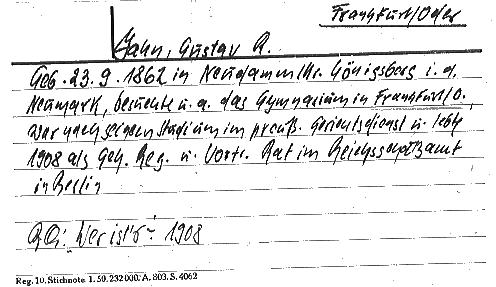 Frankfurt/Oder
Jahn, Gustav A.
Geb. 23.9.1862 in Neudamm/Kr. Königsberg i. d.
Neumark, besuchte u. a. das Gymnasium in Frankfurt/O.,
war nach seinem Studium im preuß. Gerichtsdienst u. lebte
1908 als Geh. Reg. u. Vortr. Rat im Reichsschatzamt
in Berlin
"Wer ist's" 1908
Reg. 10. Stichnote. 1. 50. 232 000. A. 803. S. 4062